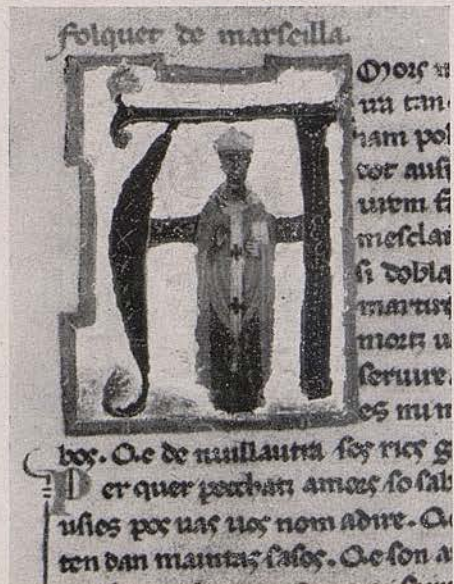 folquet de marseilla.
Mors u
ua tan
iam pol
tot ausi
uirem fi
mesclar
si dobla
martire
morir u
seruire.
es mi m
bos. Qe de nuillautra sos rics g
Per quer peccharz amors so sab
usies pos uas uos nom adire. Qe
ten dan maintas sasos. Qe son a